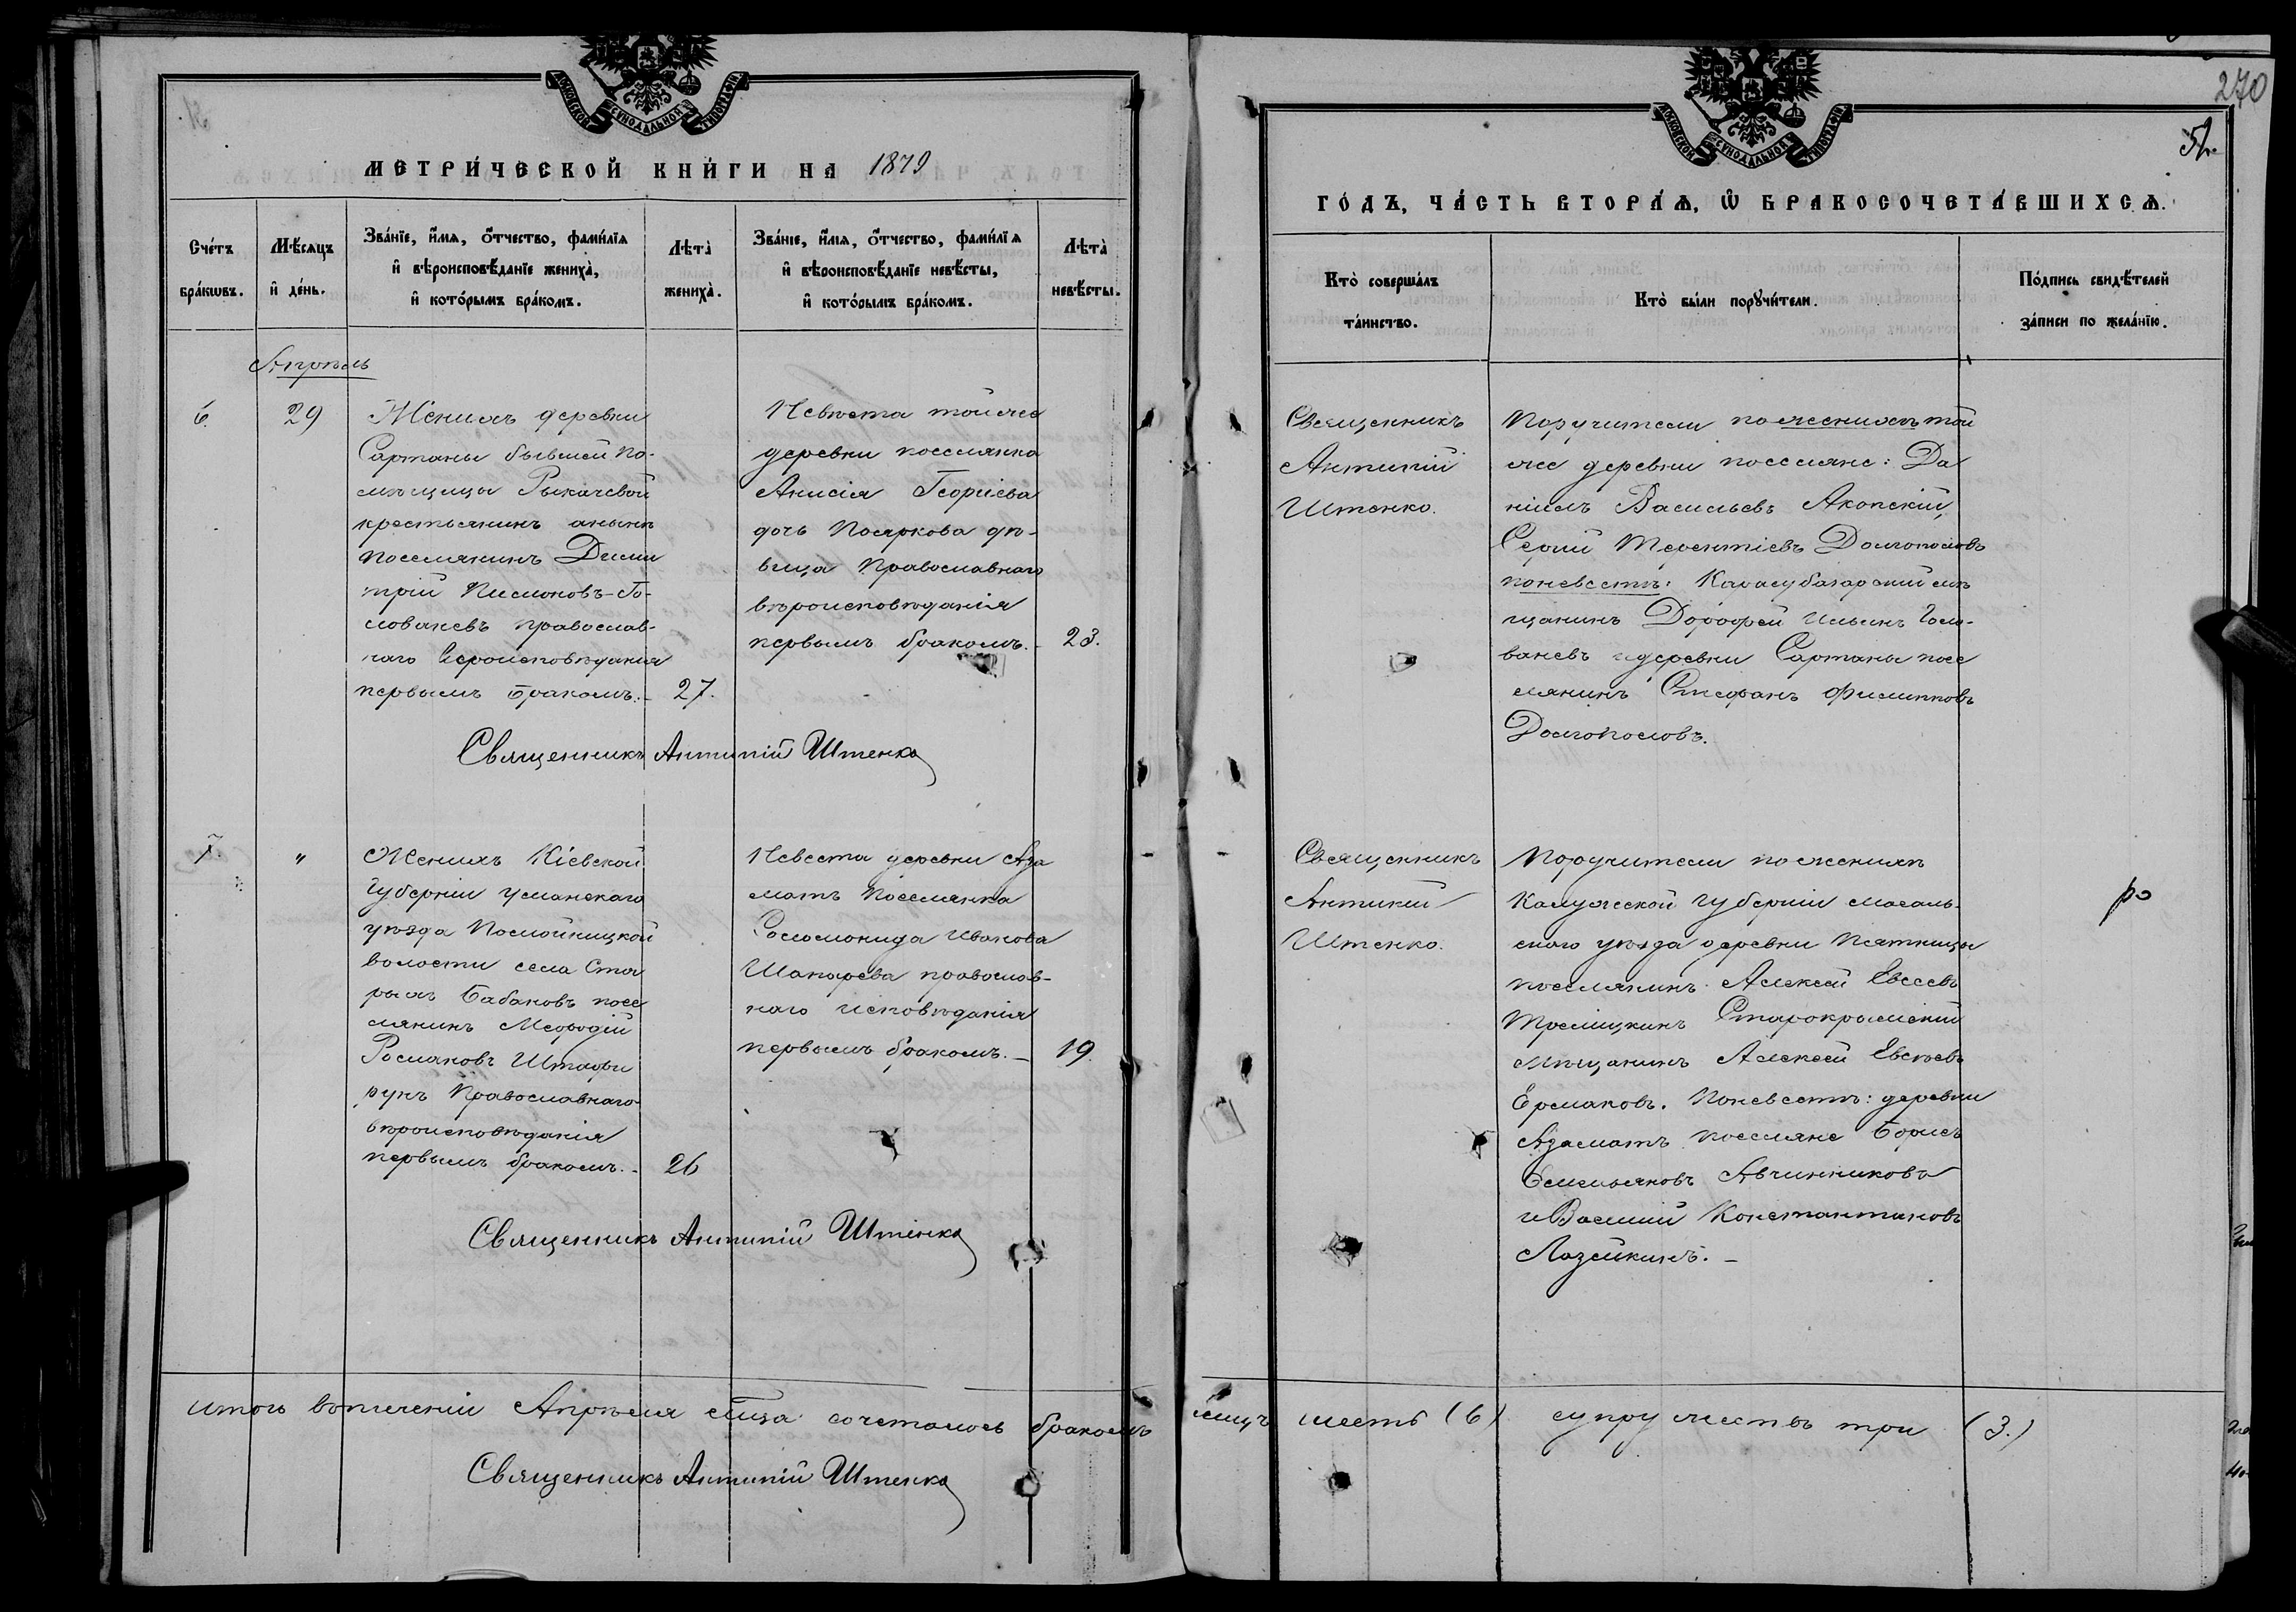 270
51.
МЕТРИ́ЧЕСКОЙ КНИ́ГИ НА 1879
ГО́ДЪ, ЧА́СТЬ ВТОРА́Ѧ, Ѽ БРАКОСОЧЕТА́ВШИХСѦ.
Сче́тъ бра́кѡвъ.
Мѣ́сяцъ и҆ де́нь.
Зва́нїе, и҆́мѧ, ѻ҆́тчество, фами́лїѧ
и҆ вѣроисповѣ́данїе жениха̀,
и҆ кото́рымъ бра́комъ.
Лѣта̀ жениха̀.
Зва́нїе, и҆́мѧ, ѻ҆́тчество, фами́лїѧ
и҆ вѣроисповѣ́данїе невѣ́сты,
и҆ кото́рымъ бра́комъ.
Лѣта̀ невѣ́сты.
Кто̀ соверша́лъ
та́инство.
Кто̀ бы́ли порꙋчи́тели.
По́дпись свидѣ́телей
за́писи по жела́нїю.
Апрѣль
6.
29
Женихъ деревни
Сартаны бывшей по-
мѣщицы Рыкачевой
крестьянинъ анынѣ
поселянинъ Дими
трій Пимоновъ Го-
ловачевъ православ-
наго вероисповѣданія
первымъ бракомъ. - 27.
Невѣста тойже
деревни поселянка
Анисія Георгіева
дочь Пояркова дѣ-
вица Православнаго
вѣроисповѣданія
первымъ бракомъ. - 23.
Священникъ
Антипій
Штенко.
Поручители поженихѣ той
же деревни поселяне: Да
ніилъ Васильевъ Акопскій,
Сергій Терентіевъ Долгополовъ
поневестѣ: Карасубазарскій мѣ
щанинъ Дорофей Ильинъ Голо-
вачевъ идеревни Сартаны посе
лянинъ Стефанъ Филипповъ
Долгополовъ.
Священникъ Антипій Штенко
7.
"
Женихъ Кіевской
Губерніи Уманскаго
уѣзда Посмойницкой
волости села Ста
рыхъ Бабановъ посе
лянинъ Мефодій
Романовъ Штафи
рунъ Православнаго
вѣроисповѣданія
первымъ бракомъ. - 26
Невеста деревни Аза
матъ Поселянка
Соломонида Иванова
Шапарева православ-
наго исповѣданія
первымъ бракомъ. - 19.
Священникъ
Антипій
Штенко.
Поручители поженихѣ
Калужской Губерніи Мосаль-
скаго уѣзда деревни Пятницы
поселянинъ Алексей Евсеевъ
Старокрымскій
мѣщанинъ Алексей Евсѣевъ
Ермаковъ. Поневестѣ: деревни
Азаматъ поселяне Борисъ
Емельяновъ Авчинниковъ
иВасилій Константиновъ
Лазейкинъ. -
ро
Священникъ Антипій Штенко
Итого втеченіи Апрѣля м̃ца сочеталось бракомъ лицъ шесть (6) супружествъ три (3.)
Священникъ Антипій Штенко